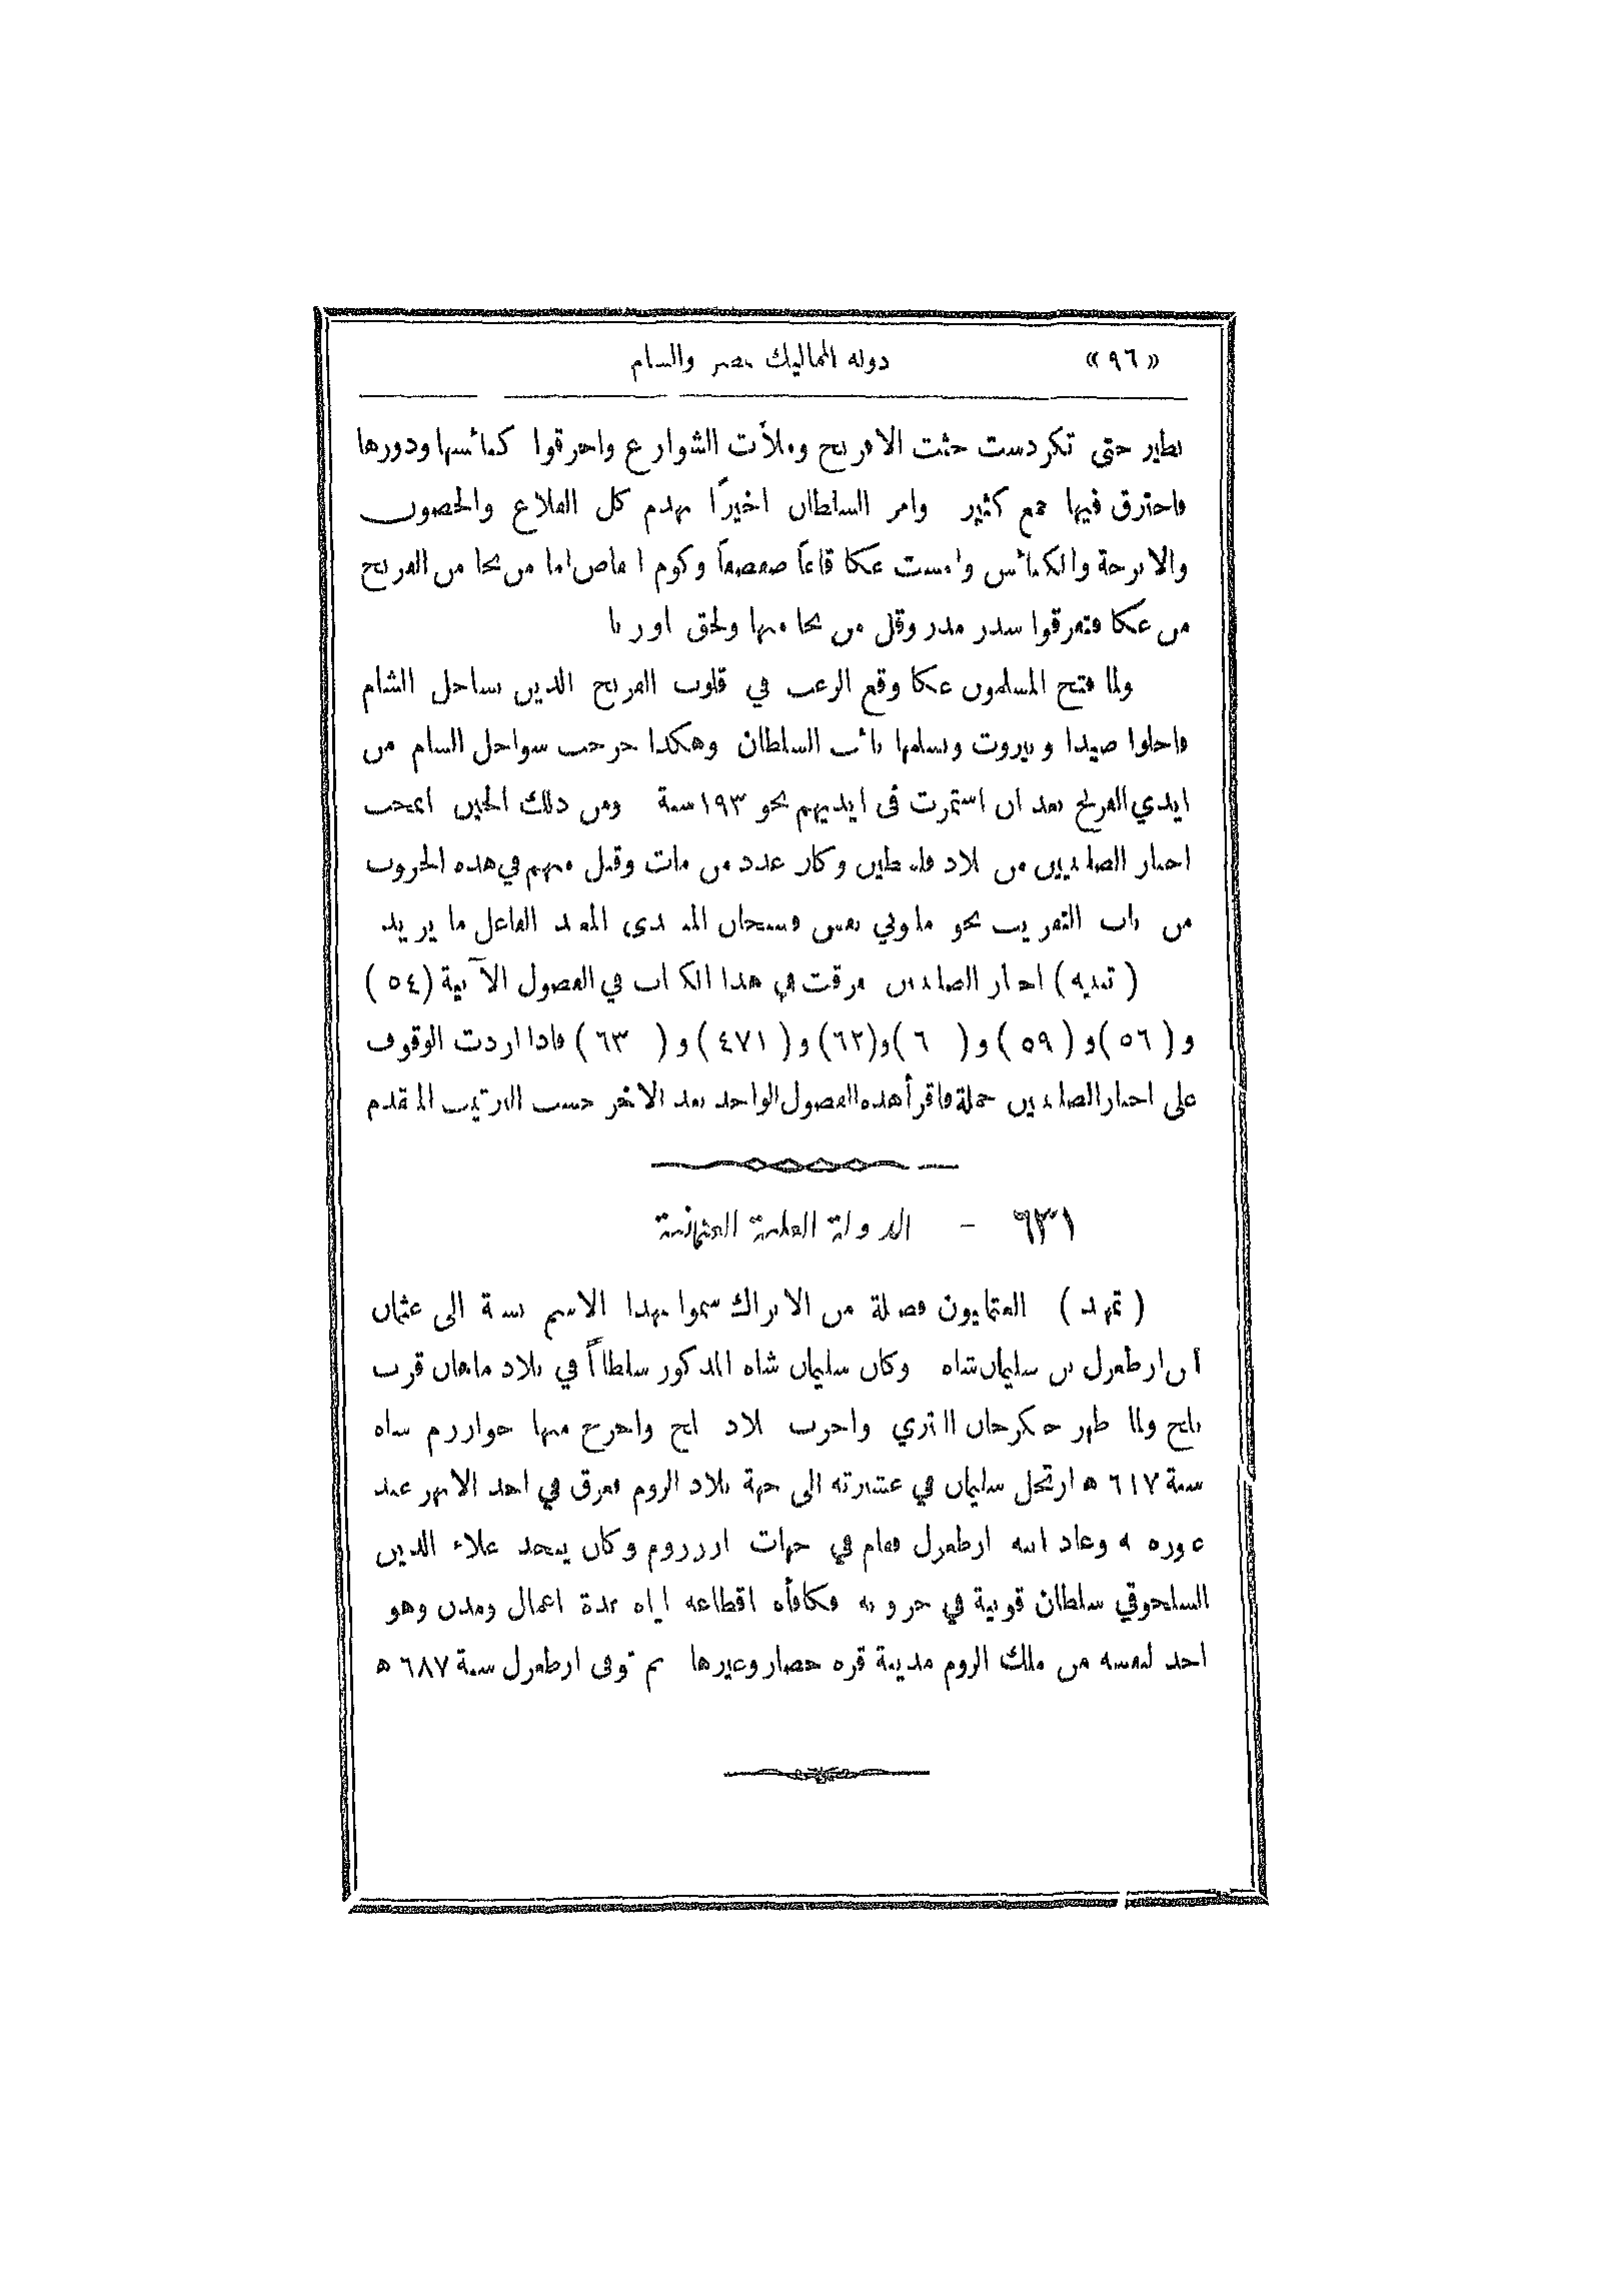 «٩٦» دولة المماليك بمصر والشام
نظير حتى تكردست جثث الافرنج وملأت الشوارع واحرقوا كنائسها ودورها
فاحترق فيها جمع كثير وامر السلطان اخيرًا بهدم كل القلاع والحصون
والابرجة والكنائس وامست عكا قاعًا صفصفًا وكوم انقاض اما من نجا من الفرنج
من عكا فتفرقوا شذر مذر وقل من نجا منها ولحق اوربا
ولما فتح المسلمون عكا وقع الرعب في قلوب الفرنج الذين بساحل الشام
فاخلوا صيدا وبيروت وتسلمها نائب السلطان وهكذا خرجت سواحل الشام من
ايدي الفرنج بعد ان استمرت في ايديهم نحو ١٩٣ سنة ومن ذلك الحين انمحت
اخبار الصليبيين من بلاد فلسطين وكان عدد من مات وقتل منهم في هذه الحروب
من باب التقريب نحو مليوني نفس فسبحان المبدي المعيد الفاعل ما يريد
(تنبيه) اخبار الصليبيين تفرقت في هذا الكتاب في الفصول الآتية (٥٤)
و (٥٦) و (٥٩) و (٦ ) و (٦٢) و (٤٧١) و ( ٦٣) فاذا اردت الوقوف
على اخبار الصليبيين جملة فاقرأ هذه الفصول الواحد بعد الاخر حسب الترتيب المتقدم
٦٣١ – الدولة العلية العثمانية
(تمهيد) العثمانيون فصيلة من الاتراك سموا بهذا الاسم نسبة الى عثمان
ابن ارطغرل بن سليمان شاه وكان سليمان شاه المذكور سلطانًا في بلاد ماهان قرب
بلخ ولما ظهر جنكزخان التتري واخرب بلاد بلخ واخرج منها خوارزم شاه
سنة ٦١٧ ه ارتحل سليمان في عشيرته الى جهة بلاد الروم فغرق في احد الانهر عند
عبوره به وعاد ابنه ارطغرل فقام في جهات ارزروم وكان ينجد علاء الدين
السلجوقي سلطان قونية في حروبه فكافأه اقطاعه اياه عدة اعمال ومدن وهو
اخذ لنفسه من ملك الروم مدينة قره حصار وغيرها ثم توفى ارطغرل سنة ٦٨٧ ه